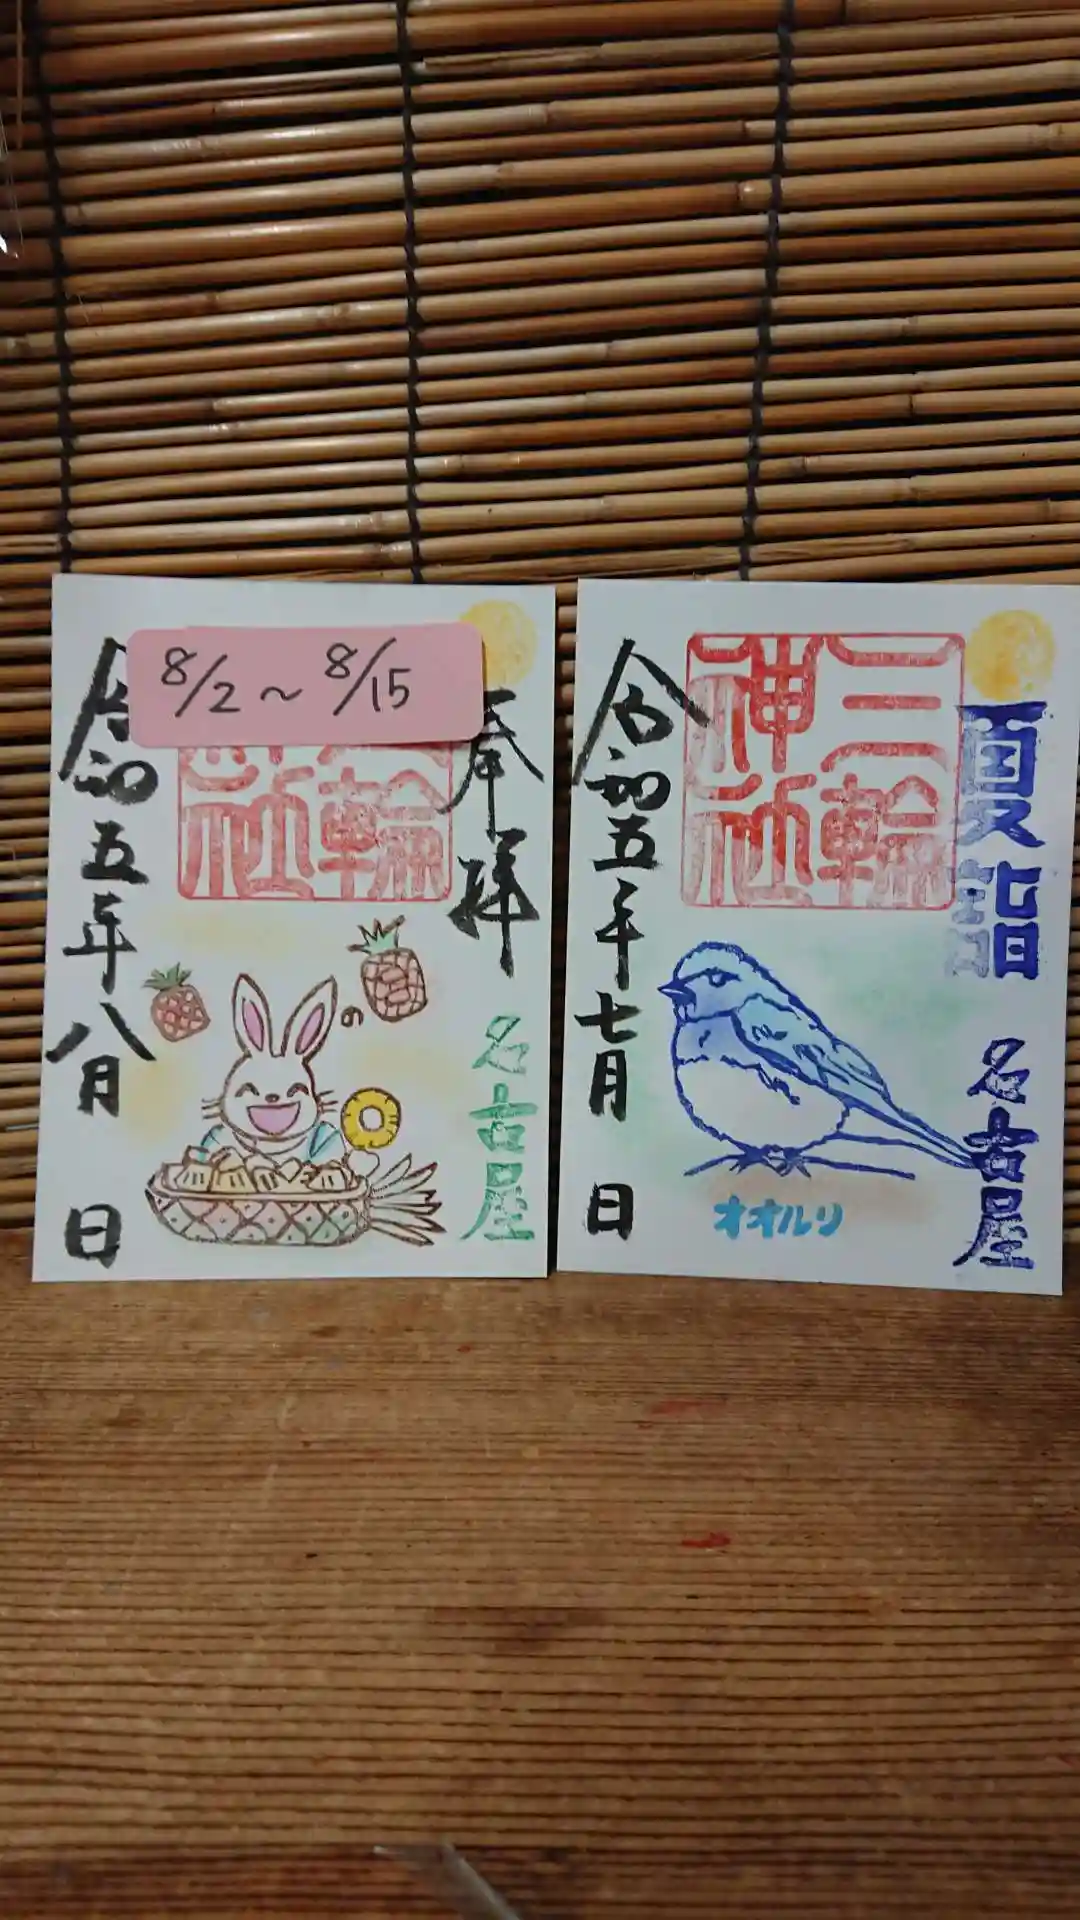 8/2～8/15
奉拝
名古屋
三輪
神社
令和五年八月 日
の
夏詣
名古屋
三輪
神社
令和五年七月 日
オオルリ